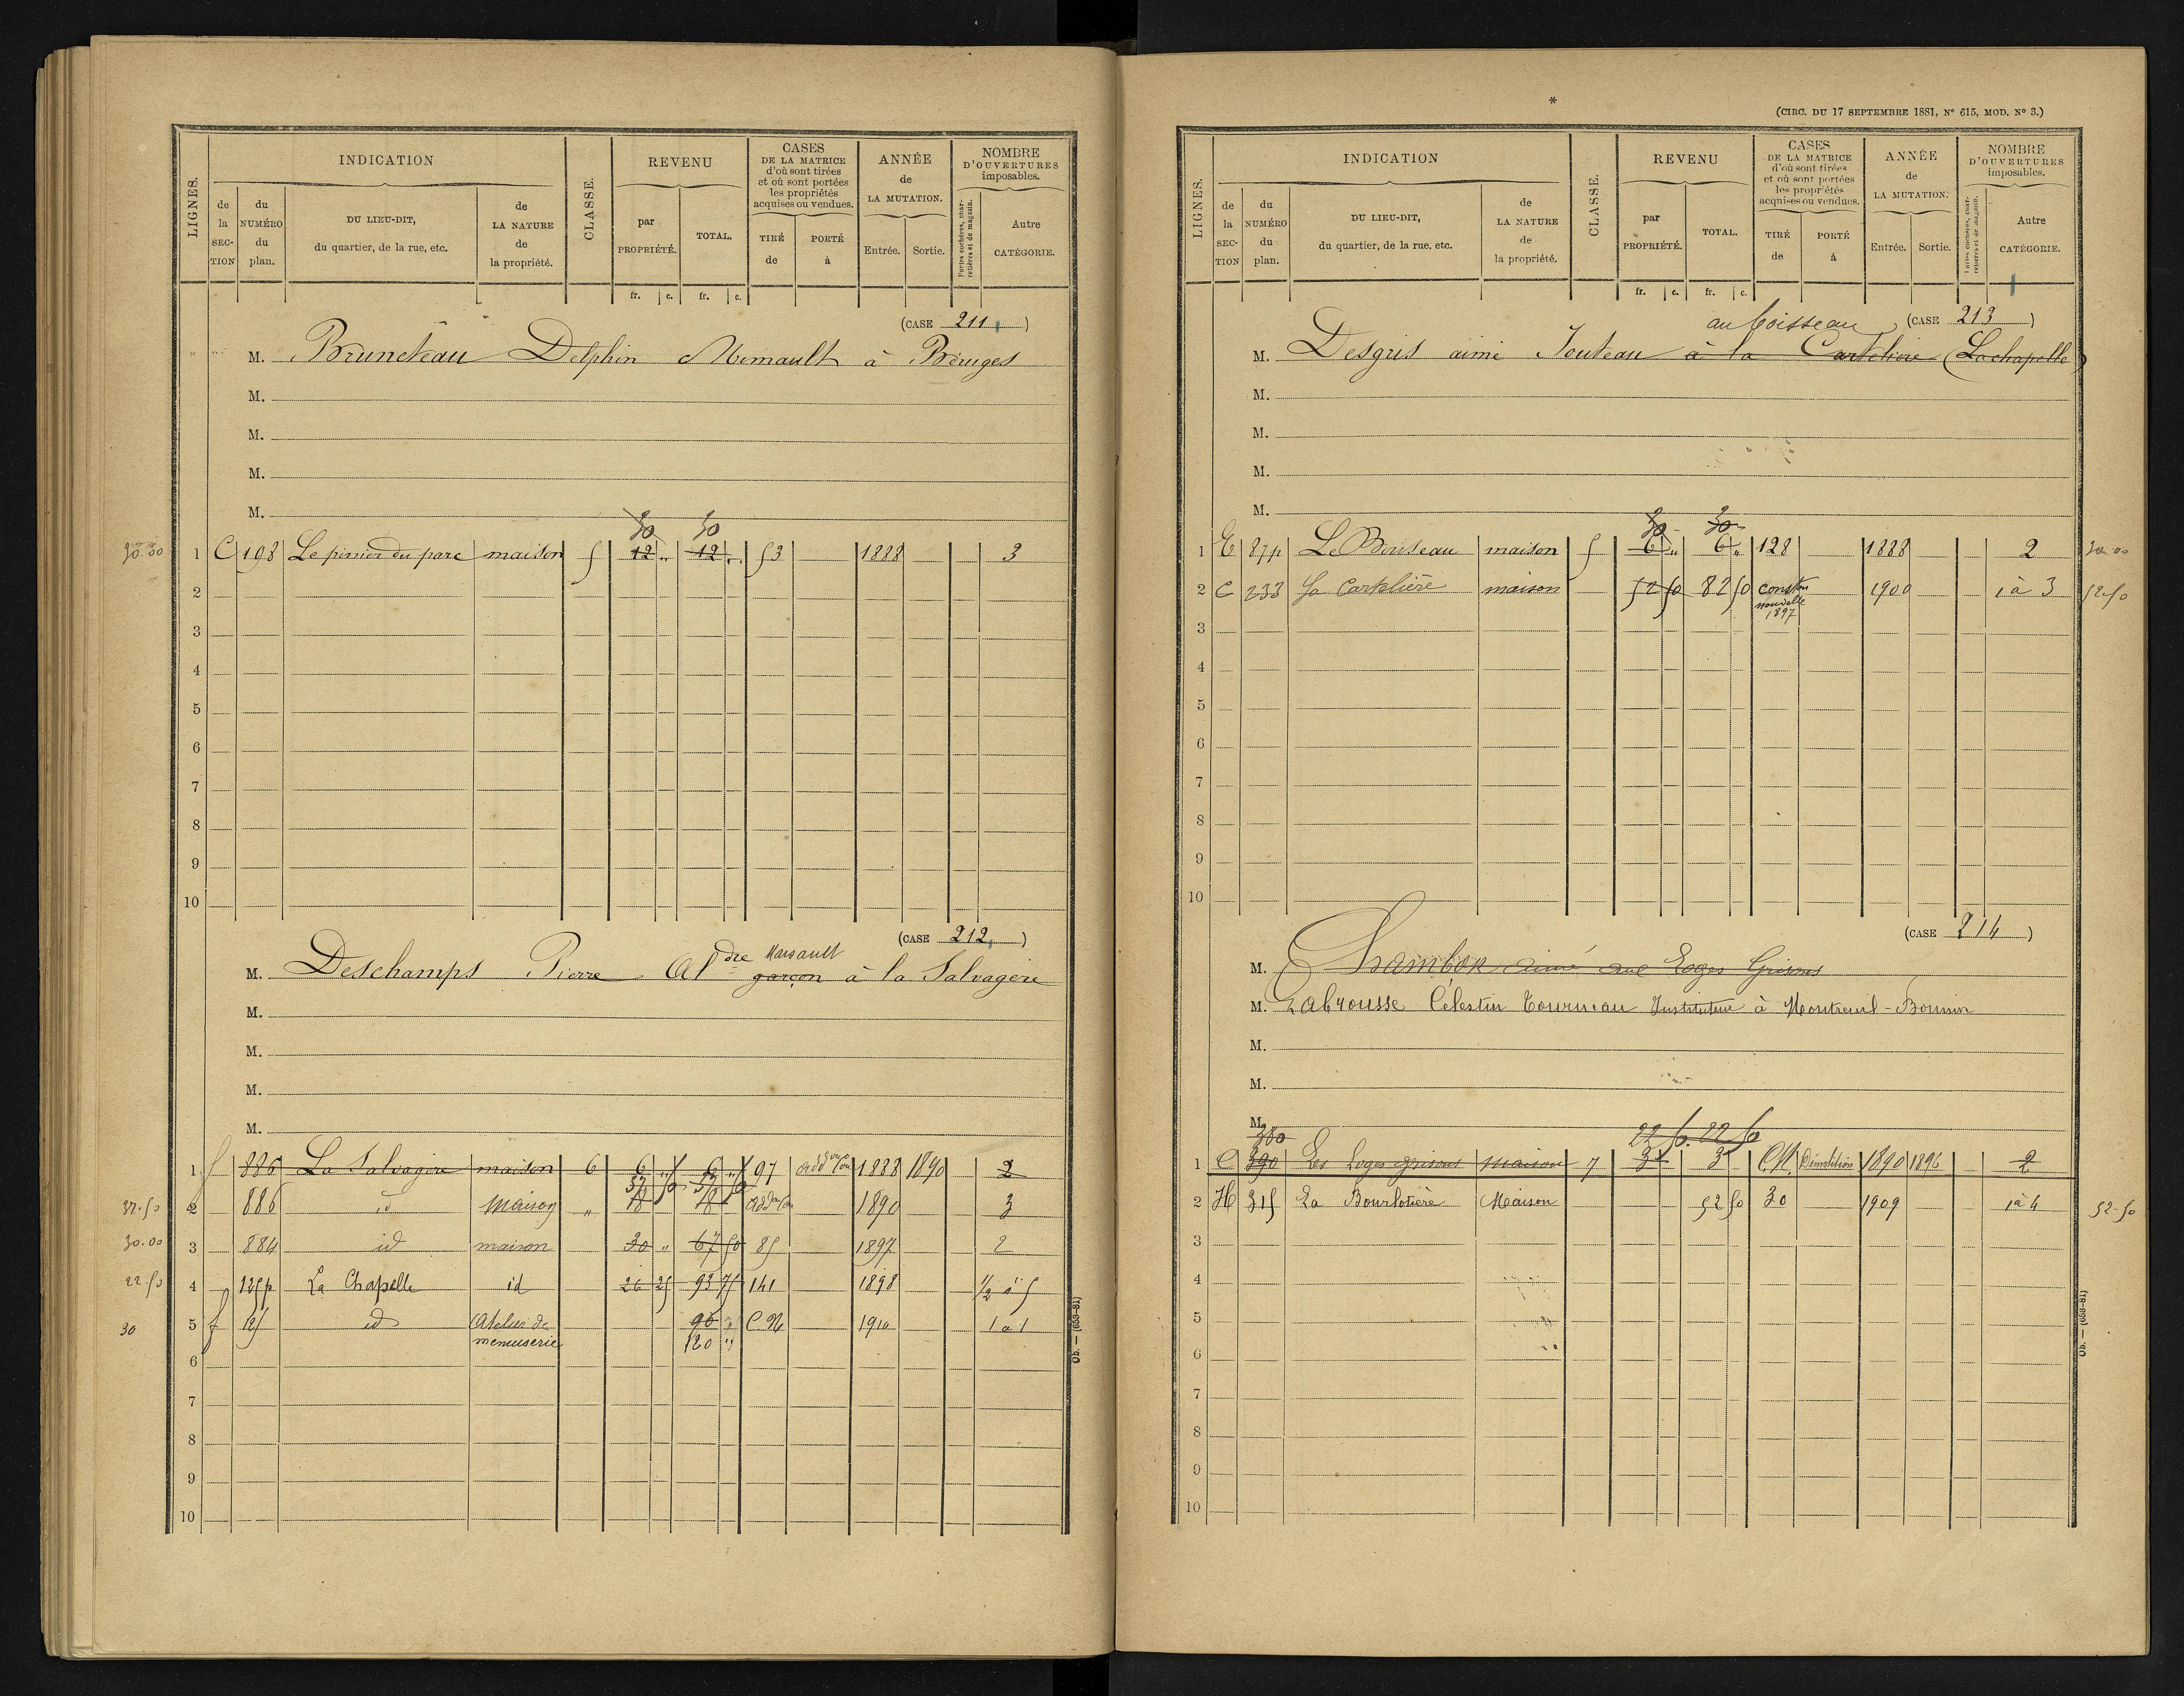 LIGNES.
INDICATION
de la SECTION
du NUMÉRO du plan.
DU LIEU-DIT, du quartier, de la rue, etc.
de LA NATURE de la propriété.
CLASSE.
REVENU
par PROPRIÉTÉ.
TOTAL.
fr. c. fr. c.
CASES DE LA MATRICE d'où sont tirées et où sont portées les propriétés acquises ou vendues.
TIRÉ de
PORTÉ à
ANNÉE de LA MUTATION.
Entrée. Sortie.
NOMBRE D'OUVERTURES imposables.
Portes cochères, charretières et de magasin.
Autre CATÉGORIE.
(CASE 211)
M. Bruneteau Delphin à Béruges
M.
M.
M.
M.
30 30
30.00 1 C 198 Le pinier du parc maison 5 12 " 12 " 53 1888 3
2
3
4
5
6
7
8
9
10
(CASE 212)
Marsault
M. Deschamps Pierre Aldre garçon à la Salvagère
M.
M.
M.
M.
1 f 886 La Salvagère maison 6 6 " 6 " 97 addon Con 1888 1890 2
37 50 37 50
37.50 2 886 id maison " 18 18 addon Con 1890 3
30.00 3 884 id maison 30 " 67 50 85 1897 2
22.50 4 125p La Chapelle id 26 25 93 75 141 1898 1/2 à 5
30 5 f 125 id Atelier de 90 " C N 1910 1 à 1
menuiserie 120 "
6
7
8
9
10
Ob. — (658-81)
*
(CIRC. DU 17 SEPTEMBRE 1881, N° 615, MOD. N° 3.)
LIGNES.
INDICATION
de la SECTION
du NUMÉRO du plan.
DU LIEU-DIT, du quartier, de la rue, etc.
de LA NATURE de la propriété.
CLASSE.
REVENU
par PROPRIÉTÉ.
TOTAL.
fr. c. fr. c.
CASES DE LA MATRICE d'où sont tirées et où sont portées les propriétés acquises ou vendues.
TIRÉ de
PORTÉ à
ANNÉE de LA MUTATION.
Entrée. Sortie.
NOMBRE D'OUVERTURES imposables.
Portes cochères, charretières et de magasin.
Autre CATÉGORIE.
au boisseau (CASE 213)
M. Desgris aimé Jouteau à la Cartelière (Lachapelle)
M.
M.
M.
M.
30 30
1 E 87p Le Boisseau maison 5 6 " 6 " 128 1888 2 30 00
2 C 233 La Cartelière maison 52 50 82 50 conston 1900 1 à 3 52.50
nouvelle
1897
3
4
5
6
7
8
9
10
(CASE 214)
M. Chambor aimé aux Loges Grisons
M. Labrousse Célestin Tourneau Instituteur à Montreuil-Bonnin
M.
M.
M.
380 22 50 22 50
1 C 390 Les Loges grisons maison 7 3 3 C N. Démolition 1890 1896 2
2 H 315 La Bourlotière Maison 52 50 30 1909 1 à 4 52-50
3
4
5
6
7
8
9
10
Ob. — (658-81)